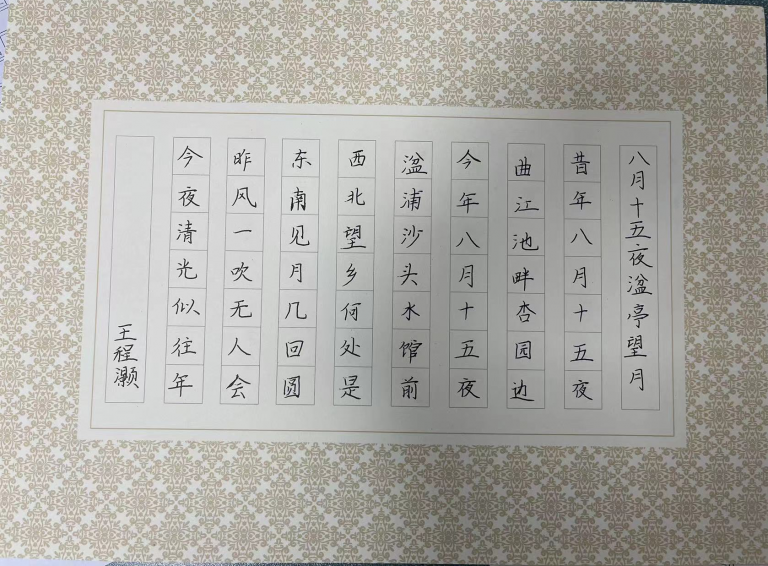 八月十五夜湓亭望月
昔年八月十五夜
曲江池畔杏园边
今年八月十五夜
湓浦沙头水馆前
西北望乡何处是
东南见月几回圆
昨风一吹无人会
今夜清光似往年
王程灏